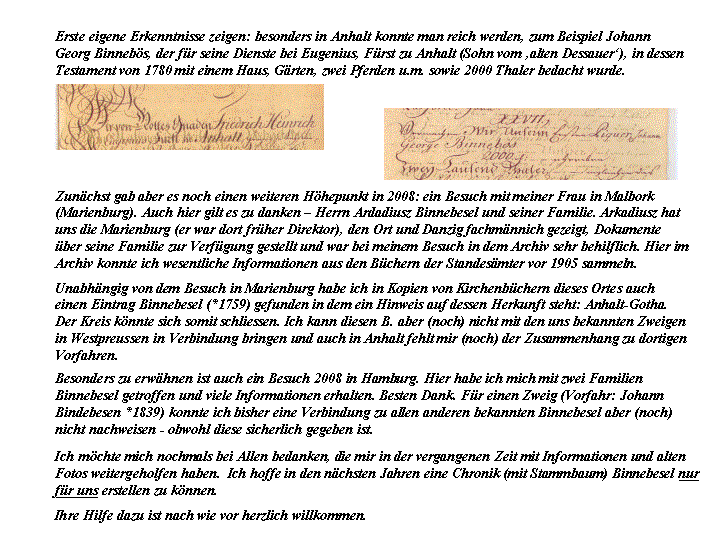 Erste eigene Erkenntnisse zeigen: besonders in Anhalt konnte man reich werden, zum Beispiel Johann
Georg Binnebös, der für seine Dienste bei Eugenius, Fürst zu Anhalt (Sohn vom ‚alten Dessauer‘), in dessen
Testament von 1780 mit einem Haus, Gärten, zwei Pferden u.m. sowie 2000 Thaler bedacht wurde.
Wir von Gottes Gnaden Friedrich Heinrich
Eugenius Fürst zu Anhalt
XXVII,
Vermachen Wir Unserm
George Binnebös
2000
Zwey Tausend Thaler
Zunächst gab aber es noch einen weiteren Höhepunkt in 2008: ein Besuch mit meiner Frau in Malbork
(Marienburg). Auch hier gilt es zu danken – Herrn Ardadiusz Binnebesel und seiner Familie. Arkadiusz hat
uns die Marienburg (er war dort früher Direktor), den Ort und Danzig fachmännich gezeigt, Dokumente
über seine Familie zur Verfügung gestellt und war bei meinem Besuch in dem Archiv sehr behilflich. Hier im
Archiv konnte ich wesentliche Informationen aus den Büchern der Standesämter vor 1905 sammeln.
Unabhängig von dem Besuch in Marienburg habe ich in Kopien von Kirchenbüchern dieses Ortes auch
einen Eintrag Binnebesel (*1759) gefunden in dem ein Hinweis auf dessen Herkunft steht: Anhalt-Gotha.
Der Kreis könnte sich somit schliessen. Ich kann diesen B. aber (noch) nicht mit den uns bekannten Zweigen
in Westpreussen in Verbindung bringen und auch in Anhalt fehlt mir (noch) der Zusammenhang zu dortigen
Vorfahren.
Besonders zu erwähnen ist auch ein Besuch 2008 in Hamburg. Hier habe ich mich mit zwei Familien
Binnebesel getroffen und viele Informationen erhalten. Besten Dank. Für einen Zweig (Vorfahr: Johann
Bindebesen *1839) konnte ich bisher eine Verbindung zu allen anderen bekannten Binnebesel aber (noch)
nicht nachweisen - obwohl diese sicherlich gegeben ist.
Ich möchte mich nochmals bei Allen bedanken, die mir in der vergangenen Zeit mit Informationen und alten
Fotos weitergeholfen haben. Ich hoffe in den nächsten Jahren eine Chronik (mit Stammbaum) Binnebesel nur
für uns erstellen zu können.
Ihre Hilfe dazu ist nach wie vor herzlich willkommen.